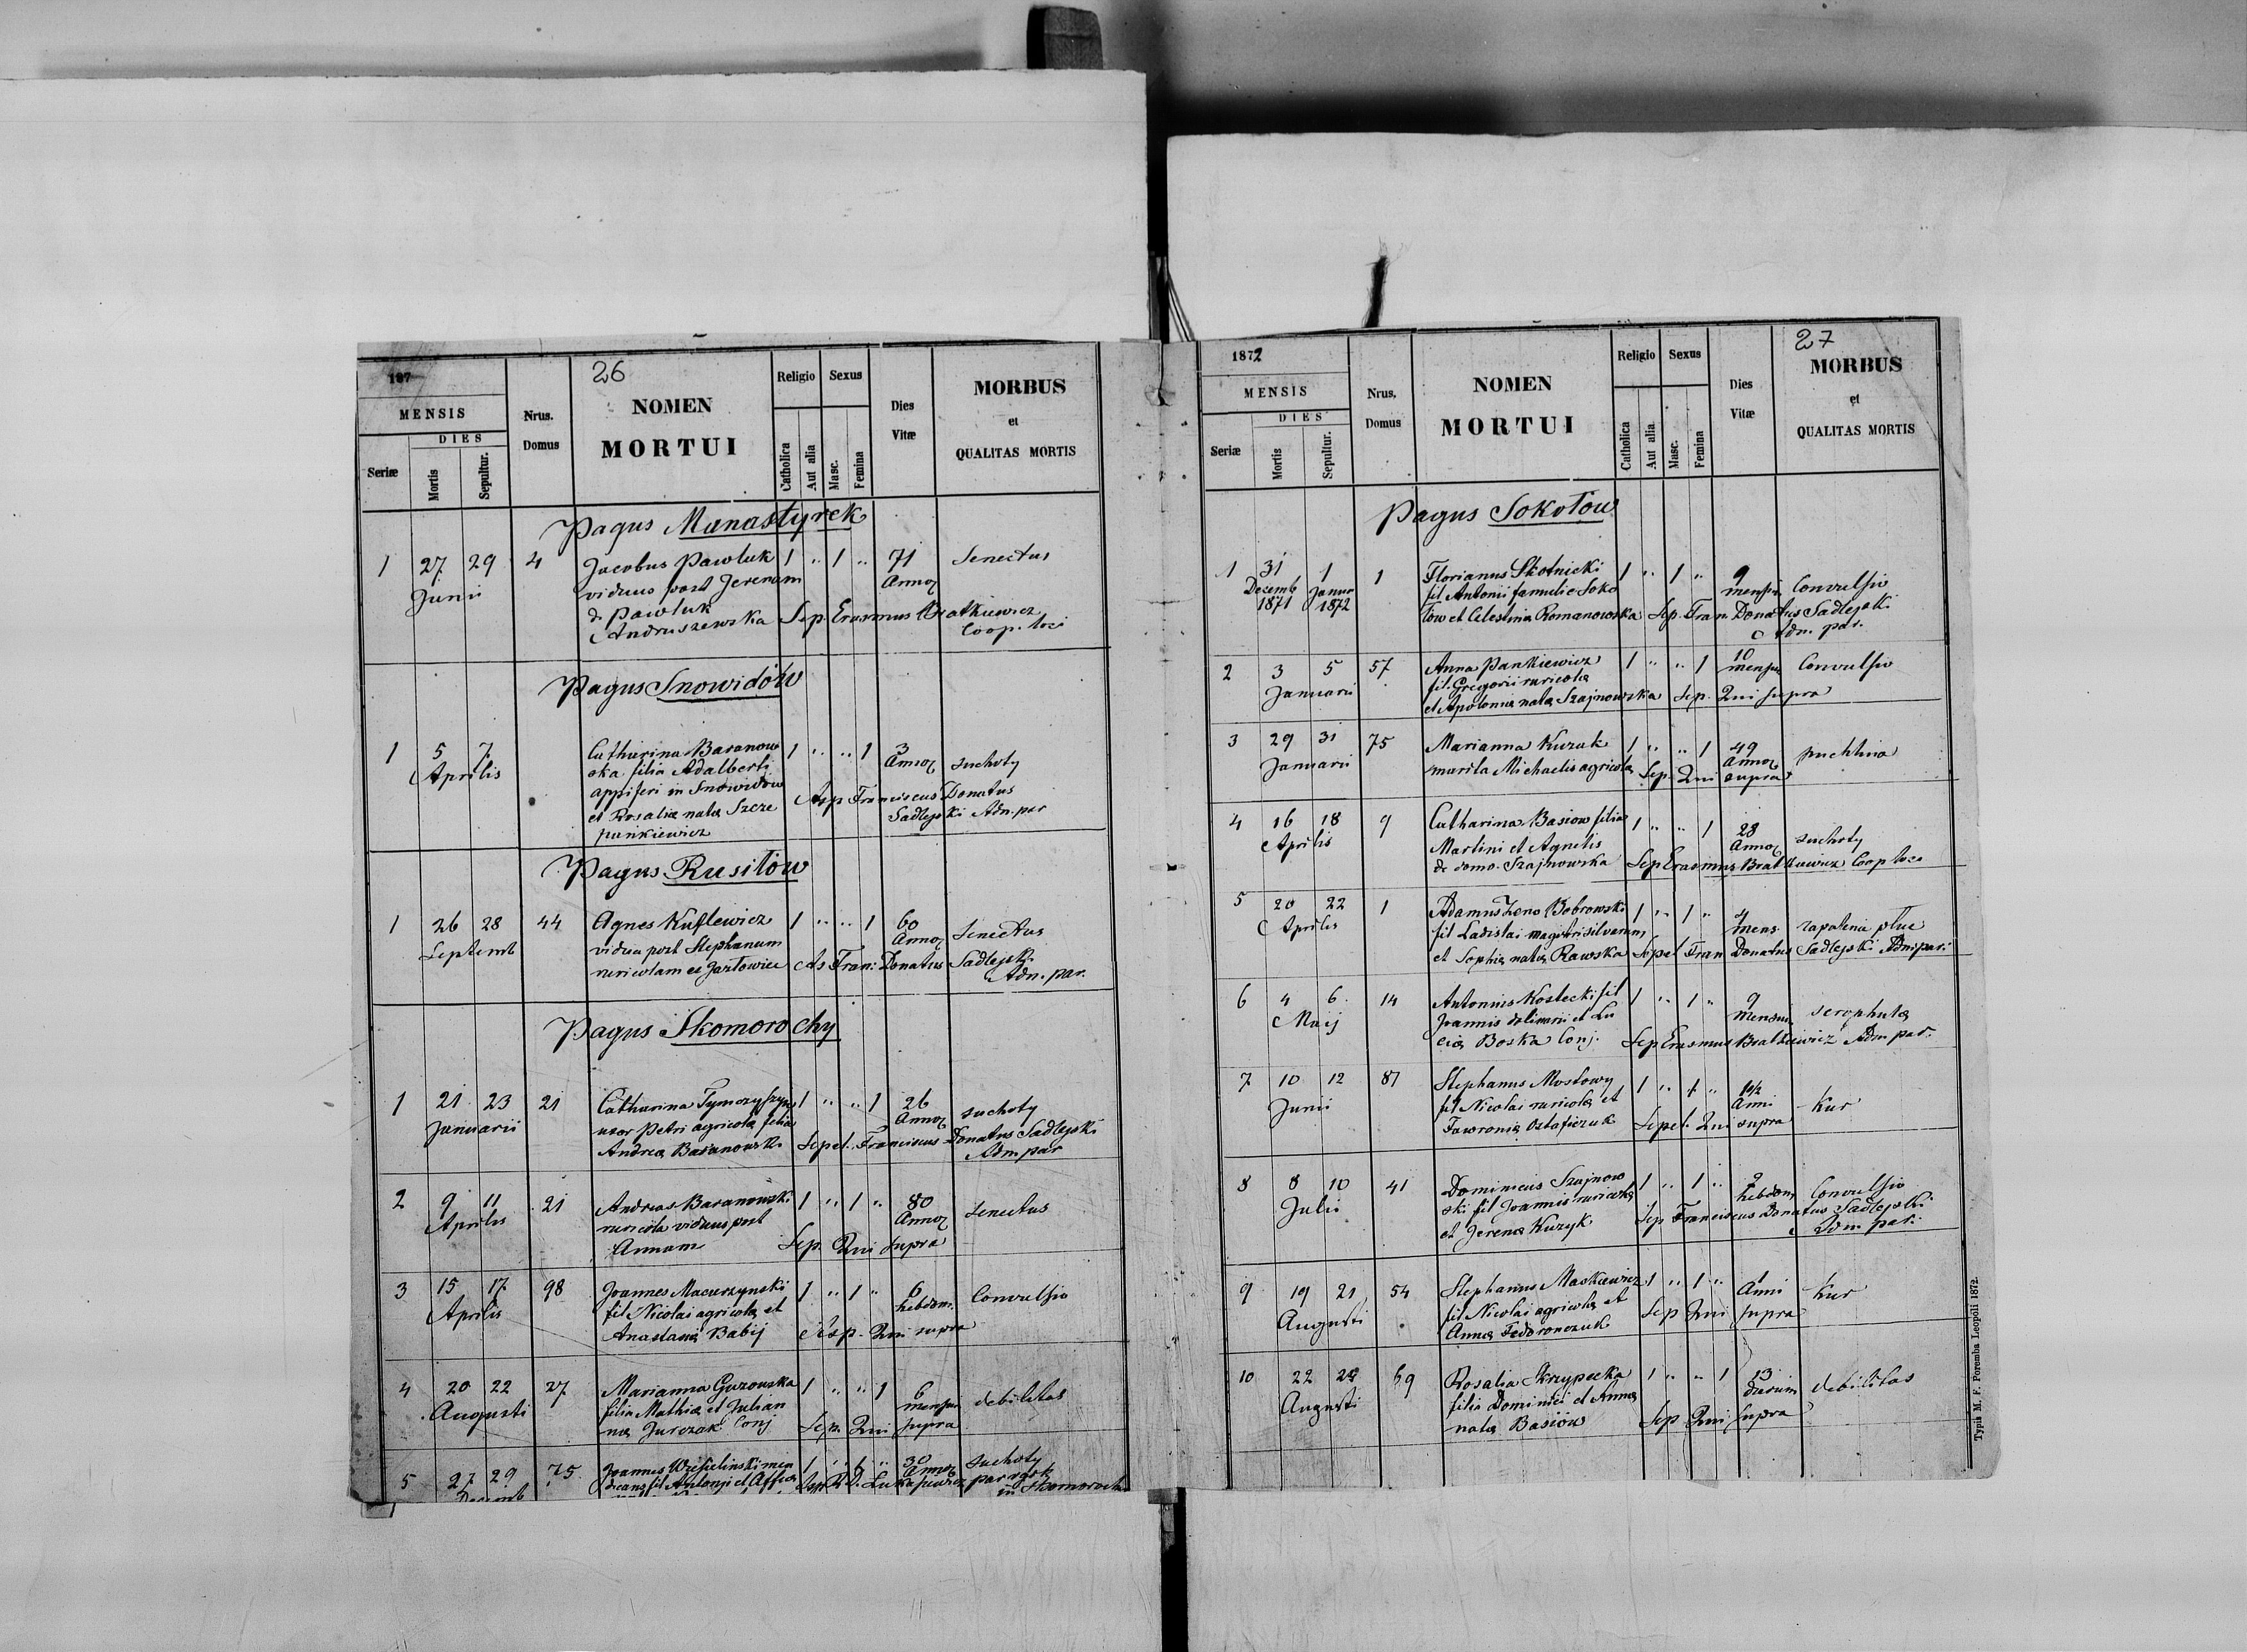 26
187
MENSIS
DIES
Seriæ
Mortis
Sepultur.
Nrus.
Domus
NOMEN
MORTUI
Religio
Sexus
Catholica
Aut alia
Masc.
Femina
Dies
Vitæ
MORBUS
et
QUALITAS MORTIS
Pagus Munastyrek
1 27 29 4 Jacobus Pawluk 1 " 1 " 71 Senectus
Junii viduus post Jerenam Annoz
d. Pawluk
Andruszewska Sep. Erasmus Bratkiewicz
Coop. loci
Pagus Snowidów
1 5 7 Catharina Baranow 1 " " 1 3 suchoty
Aprilis ska filia Adalberti Annoz
opiferi in Snowidow
et Rosaliæ natæ Szcze Asp Franciscus Donatus
pankiewicz Sadlejski Adm. par
Pagus Rusiłow
1 26 28 44 Agnes Kuflewicz 1 " " 1 60 Senectus
Septemb vidua post Stephanum Annoz
ruricolam ex Jazlowice As Fran: Donatus Sadlejski
Adm. par.
Pagus Skomorochy
1 21 23 21 Catharina 1 " " 1 26 suchoty
Januarii uxor Petri agricolæ filia Annoz
Andreæ Baranowski Sepel. Franciscus Donatus Sadlejski
Adm par
2 9 11 21 Andreas Baranowski 1 " 1 " 80 Senectus
Aprilis ruricola viduus post Annoz
Annam Sep. Qui supra
3 15 17 98 Joannes Macurzynski 1 " 1 " 6 Convulsio
Aprilis fil Nicolai agricolæ et hebdom.
Anastasiæ Babij Asp. Qui supra
4 20 22 27 Marianna Guzowska 1 " " 1 6 debilitas
Augusti filia Mathiæ et Julian mensium
næ Jurczak Conj Sep. Qui supra
5 27 29 75 Joannes men 1 " 1 " 30 suchoty
Decemb dicans fil Antonj et Annoz
in Skomoroch
27
1872
MENSIS
DIES
Seriæ
Mortis
Sepultur.
Nrus.
Domus
NOMEN
MORTUI
Religio
Sexus
Catholica
Aut alia
Masc.
Femina
Dies
Vitæ
MORBUS
et
QUALITAS MORTIS
Pagus Sokołow
1 31 1 1 Florianus Skotnicki 1 " 1 " 9 Convulsio
Decemb Januar fil Antonii famuli e Soko mensium
1871 1872 łow et Celestinæ Romanowska Sep. Fran. Donatus Sadlejski
Adm. par.
2 3 5 57 Anna Pankiewicz 1 " " 1 10 Convulsio
Januarii fil. Gregorii ruricolæ mensium
et Apoloniæ natæ Szajnowska Sep. Qui supra
3 29 31 75 Marianna Kuzuk 1 " " 1 49 puchlina
Januarii marita Michaelis agricolæ Annoz
Sep. Qui supra
4 16 18 9 Catharina Basiow filia 1 " " 1 28 suchoty
Aprilis Martini et Agnetis Annoz
de domo Szajnowska Sep Erasmus Bratkiewicz Coop loci
5 20 22 1 Adamus Zeno Bobrowski 1 " 1 " 4 zapalenie płuc
Aprilis fil Ladislai magistri silvarum mens.
et Sophiæ natæ Rawska Sepel Fran Donatus Sadlejski Adm par:
6 4 6 14 Antonius Kostecki fil 1 " 1 " 9 scrophulæ
Maij Joannis doliarii et Lu mensium
ciæ Boska Conj. Sep Erasmus Bratkiewicz Adm par.
7 10 12 87 Stephanus Mostowy 1 " 1 " 1 1/2 Kur
Junii fil Nicolai ruricolæ et Anni
Fawroniæ Ostaficzuk Sepel. Qui supra
8 8 10 41 Dominicus Szajnow 1 " 1 " 2 Convulsio
Julii ski fil Joannis ruricolæ hebdom
et Jerenæ Kuzyk Sep Franciscus Donatus Sadlejski
Adm. par.
9 19 21 54 Stephanus Maskiewicz 1 " 1 " 1 Kur
Augusti fil Nicolai agricolæ et Anni
Annæ Fedoronczuk Sep Qui supra
10 22 24 69 Rosalia Skrzypecka 1 " " 1 13 debilitas
Augusti filia Dominici et Annæ dierum
natæ Basiów Sep. Qui supra
Typis M. F. Poremba Leopoli 1872.